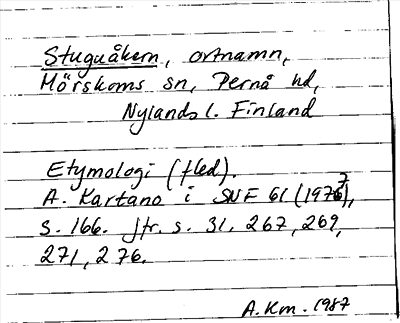 Stuguåkern, ortnamn,
Mörskoms sn, Pernå hd,
Nylands l. Finland
Etymologi (fled).
A. Kartano i SNF 61 (1977),
s. 166. Jfr. s. 31, 267, 269,
271, 276.
A. Km. 1987